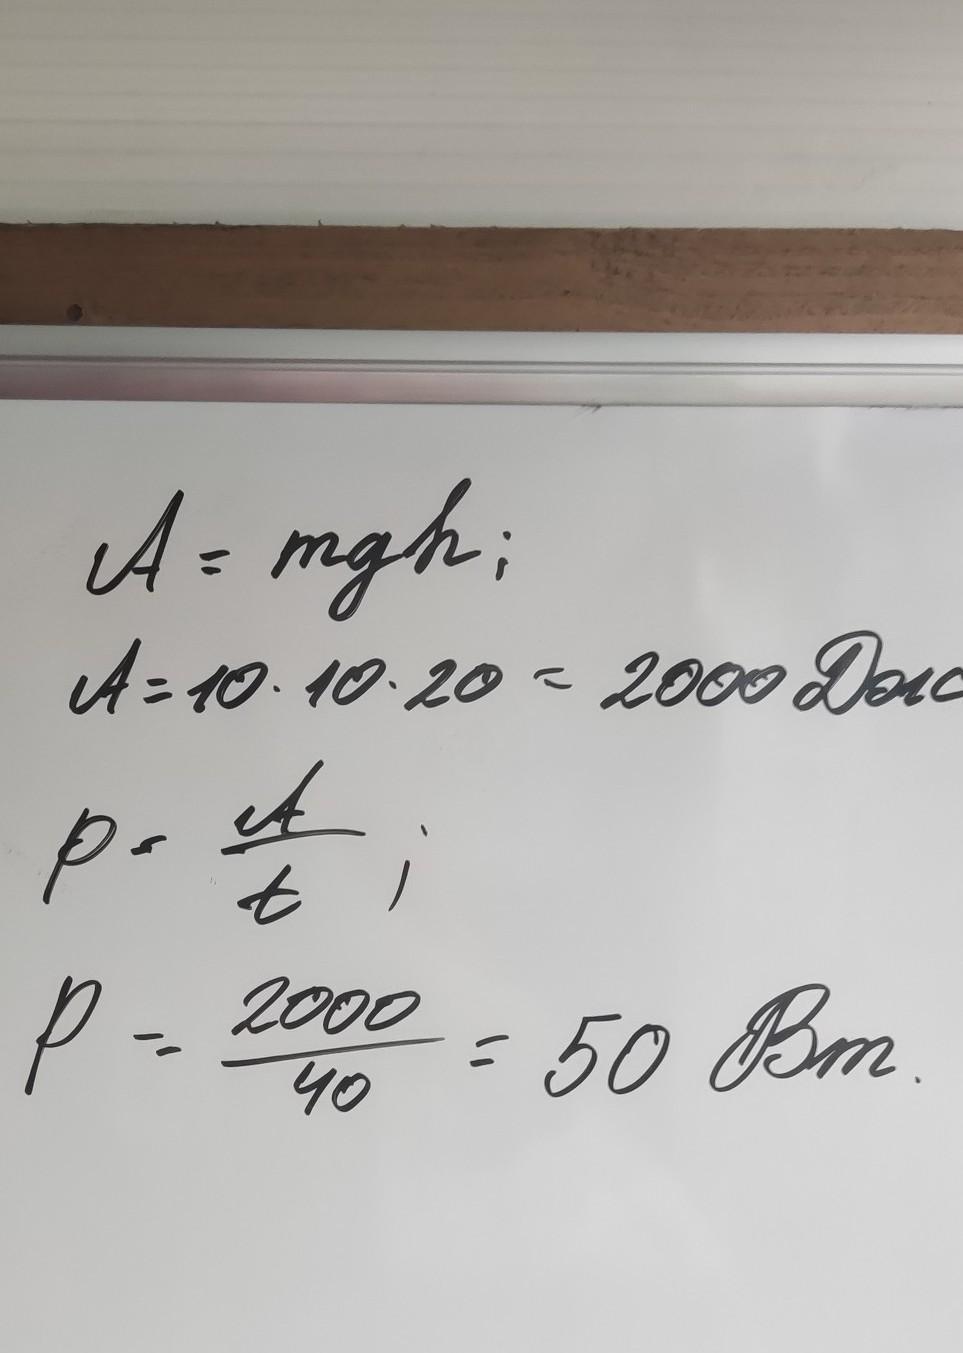 A = mgh;
A = 10 · 10 · 20 = 2000 Дж
P = A/t;
P = 2000/40 = 50 Вт.